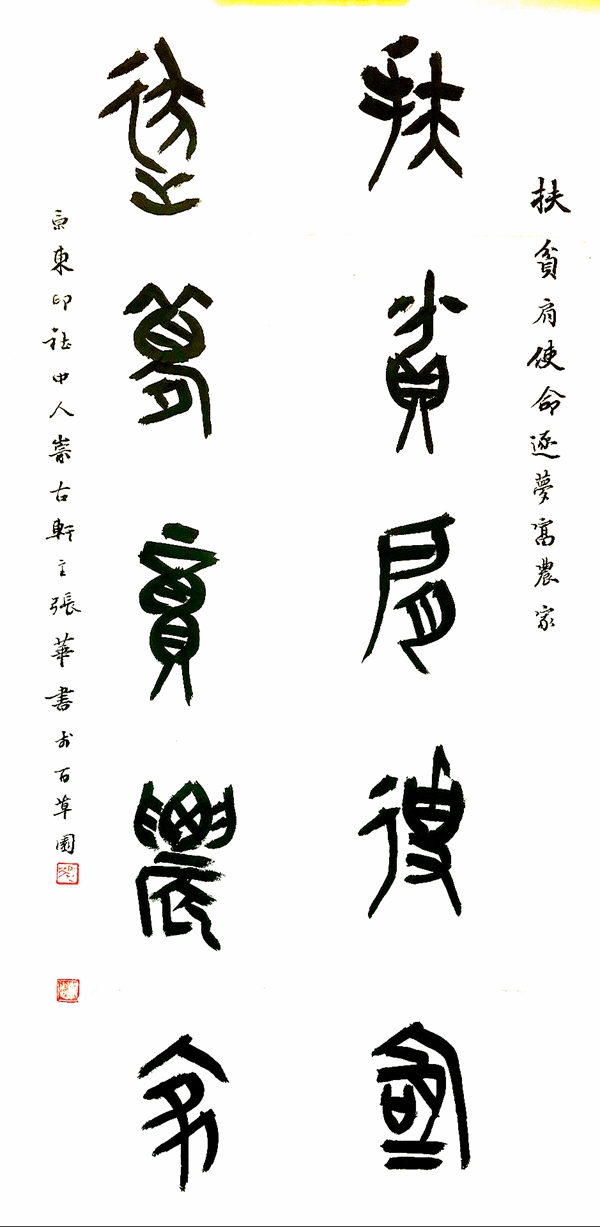 扶貧肩使命逐夢富農家
扶貧肩使命
逐夢富農家
京東印社中人崇古軒主張華書於百草園